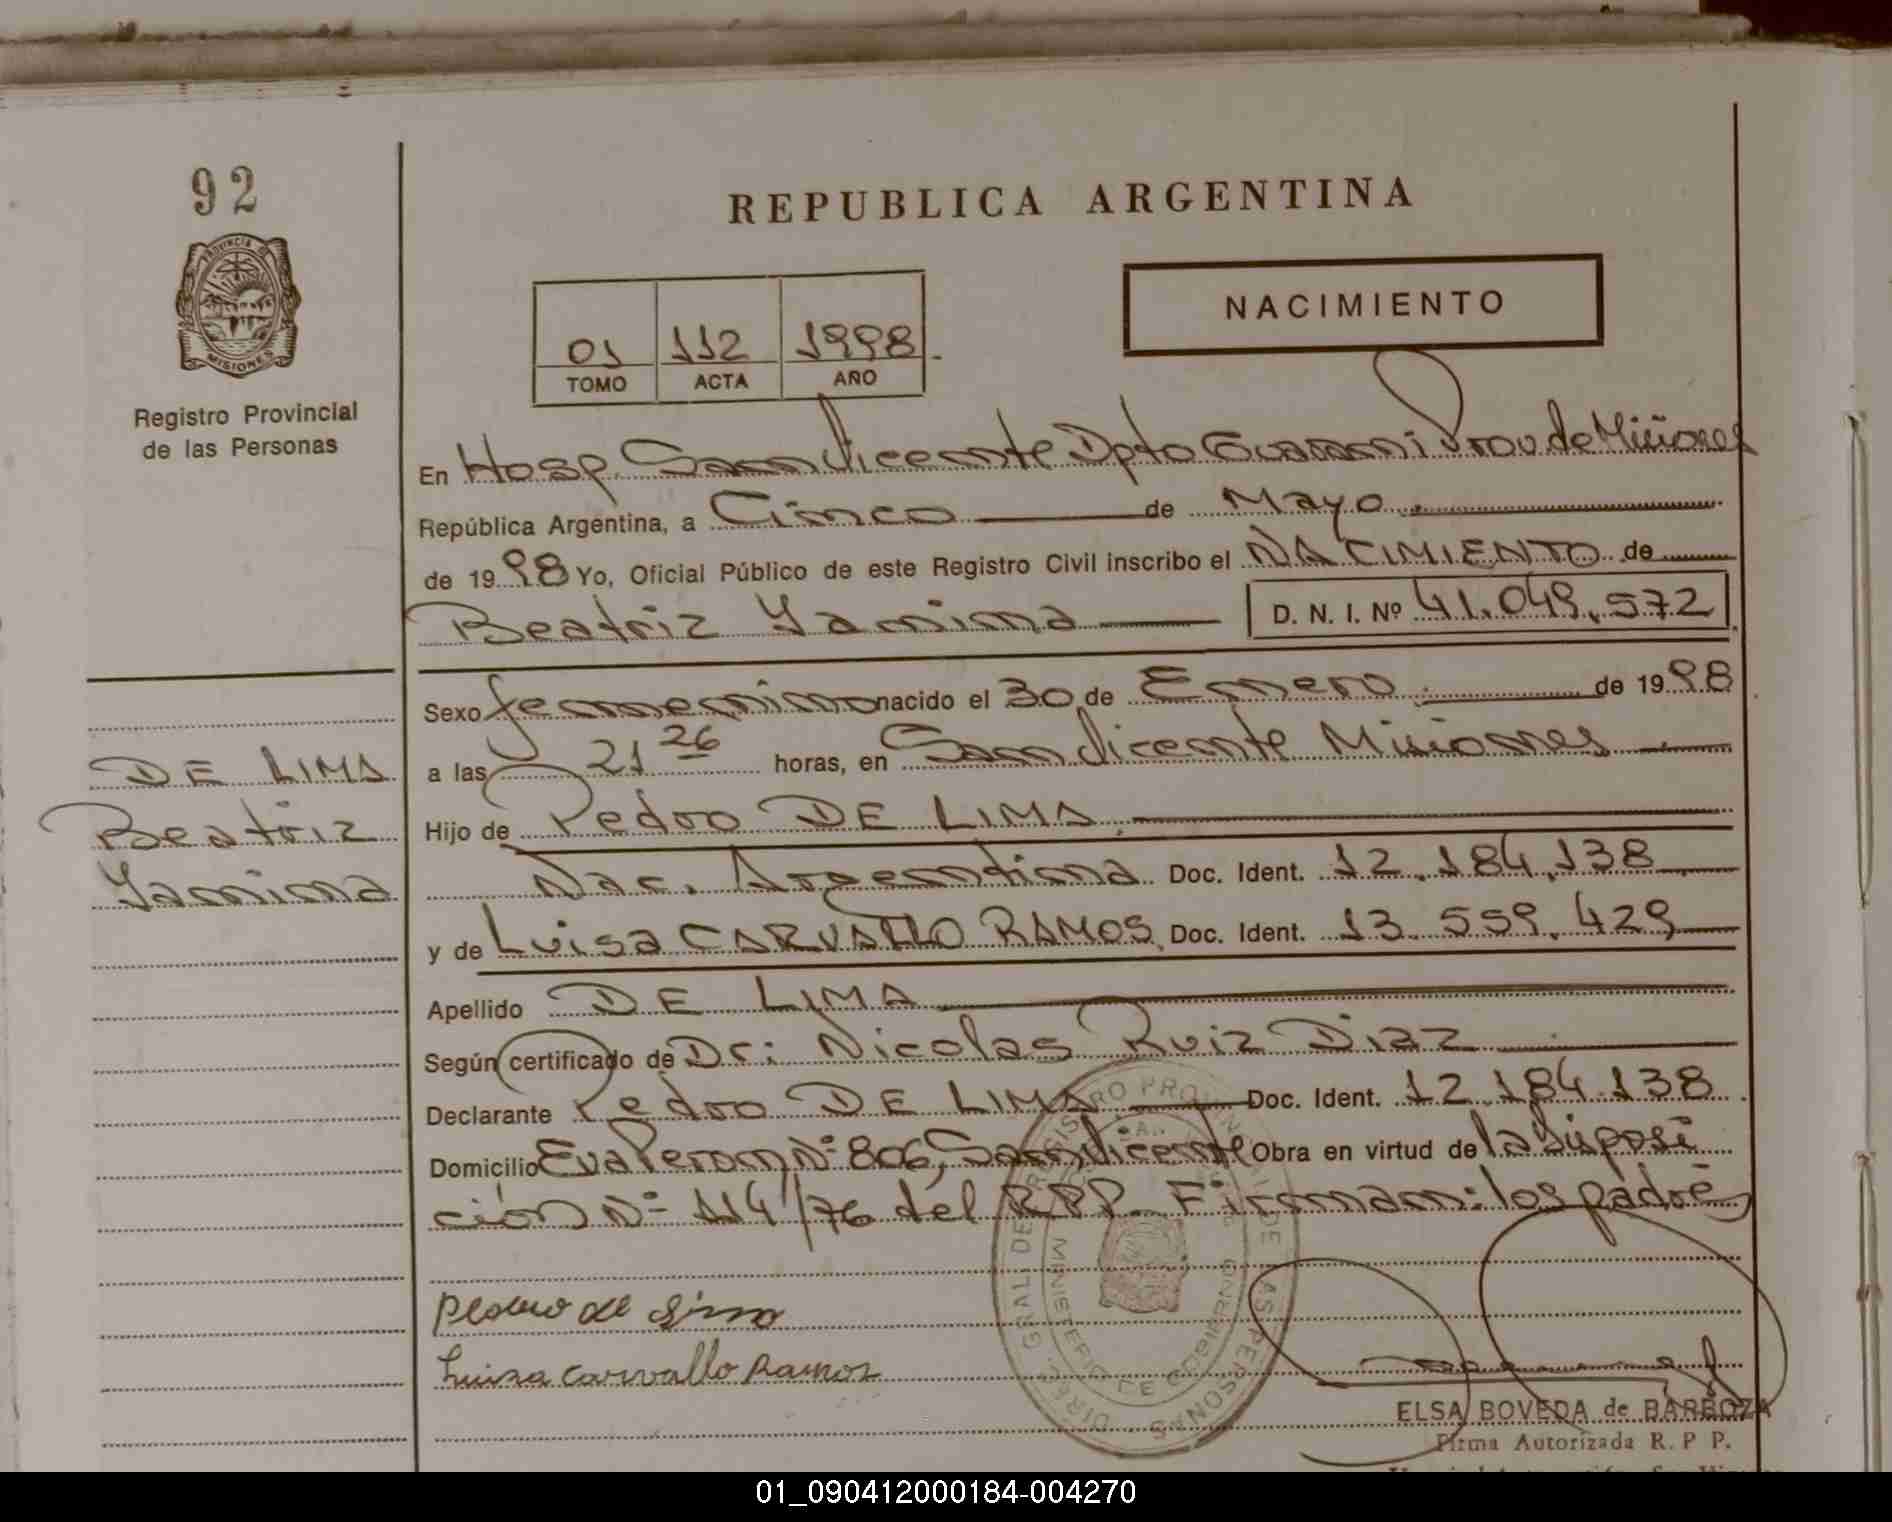 92
PROVINCIA DE
MISIONES
Registro Provincial
de las Personas
REPUBLICA ARGENTINA
01 112 1998.
TOMO ACTA AÑO
NACIMIENTO
En Hosp. San Vicente Dpto Guarani Prov. de Misiones
República Argentina, a Cinco de Mayo.
de 1998 Yo, Oficial Público de este Registro Civil inscribo el NACIMIENTO de
Beatriz Yanina D. N. I. Nº 41.049.572
Sexo femenino nacido el 30 de Enero. de 1998
a las 21 26 horas, en San Vicente Misiones
Hijo de Pedro DE LIMA.
Nac. Argentina Doc. Ident. 12.184.138
y de Luisa CARVALLO RAMOS. Doc. Ident. 13.559.429
Apellido DE LIMA
Según certificado de Dr: Nicolas Ruiz Diaz
Declarante Pedro DE LIMA Doc. Ident. 12.184.138
Domicilio Eva Peron Nº 806, San Vicente Obra en virtud de la Disposi
ción Nº 114/76 del R.P.P. Firman: los padres
DE LIMA
Beatriz
Yanina
Pedro de Lima
Luisa Carvallo Ramos
DIREC. GRAL DE REGISTRO PROVINCIAL DE LAS PERSONAS
MINISTERIO DE GOBIERNO
ELSA BOVEDA de BARBOZA
Firma Autorizada R. P P.
01_090412000184-004270